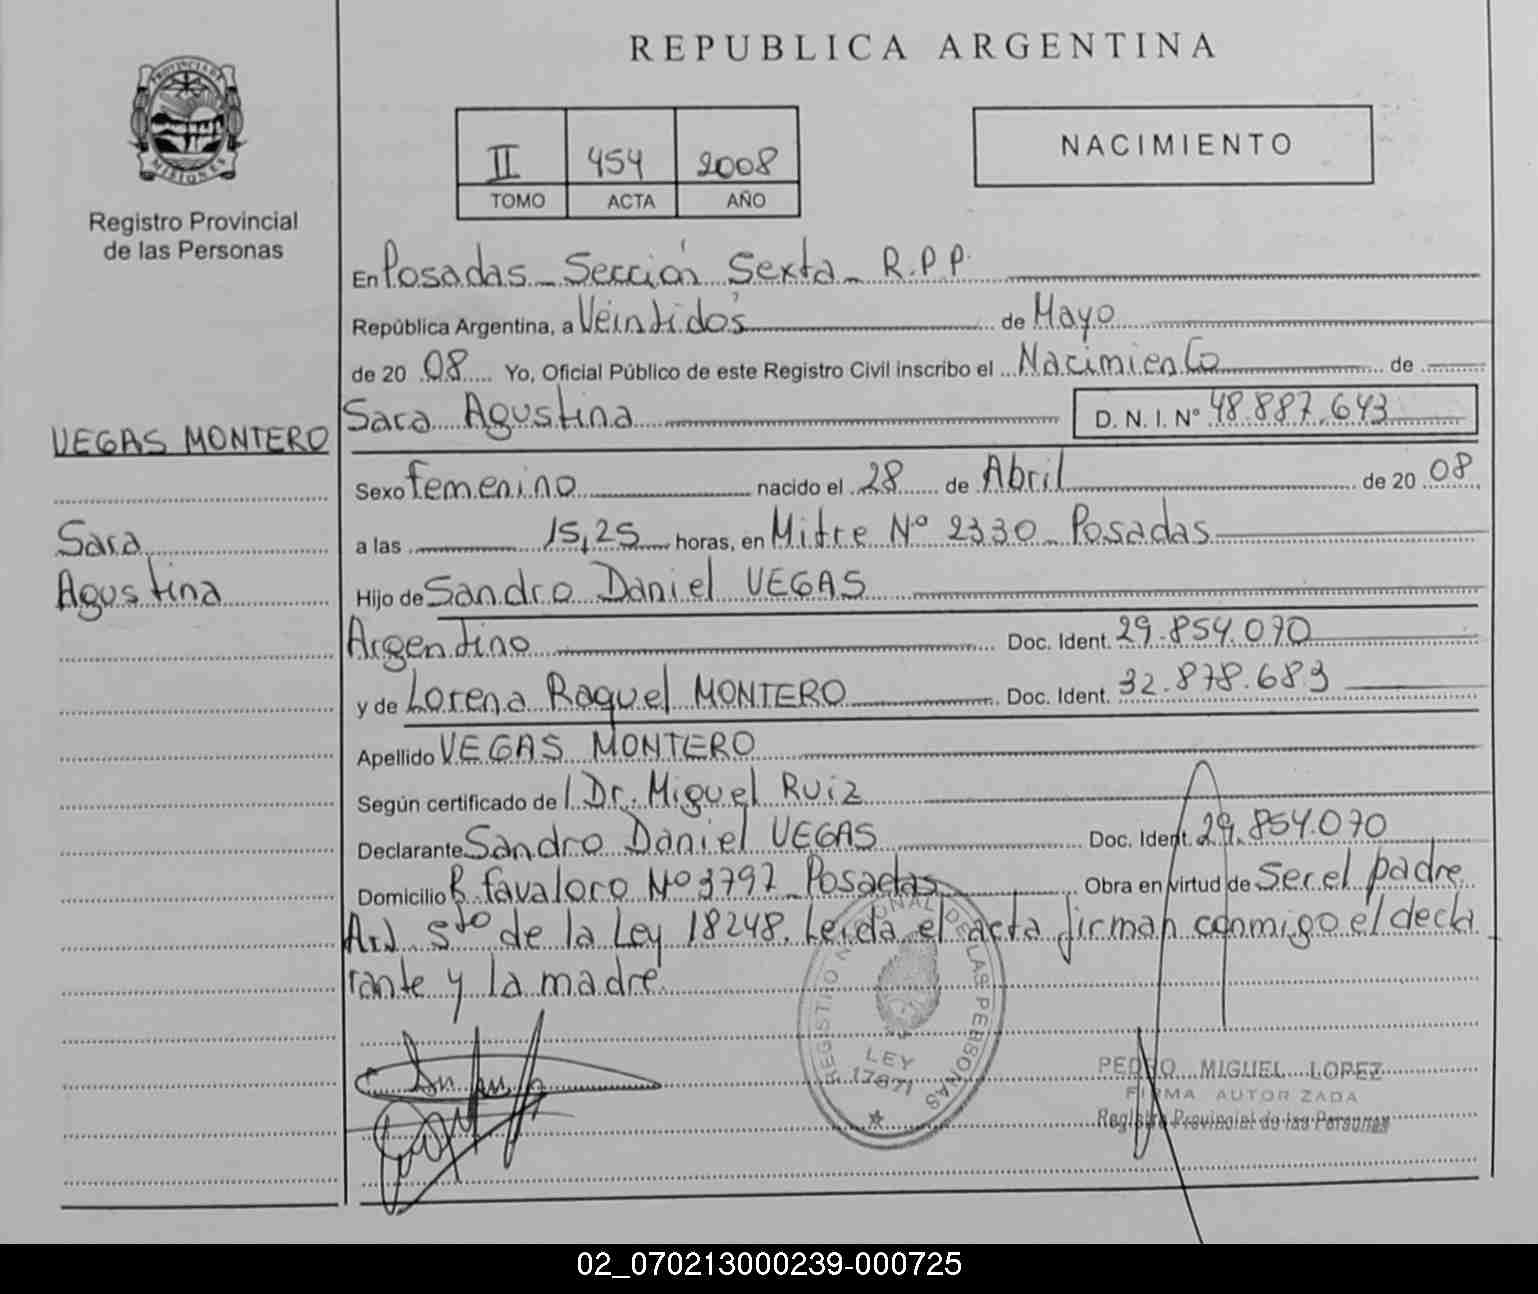 REPUBLICA ARGENTINA
PROVINCIA DE
MISIONES
Registro Provincial
de las Personas
II 454 2008
TOMO ACTA AÑO
NACIMIENTO
En Posadas - Sección Sexta - R.P.P.
República Argentina, a Veintidós de Mayo
de 20 08 Yo, Oficial Público de este Registro Civil inscribo el Nacimiento de
Sara Agustina D. N. I. N° 48.887.643
VEGAS MONTERO
Sexo femenino nacido el 28 de Abril de 20 08
Sara
a las 15,25 horas, en Mitre Nº 2330 - Posadas
Agustina
Hijo de Sandro Daniel VEGAS
Argentino Doc. Ident. 29.854.070
y de Lorena Raquel MONTERO Doc. Ident. 32.878.683
Apellido VEGAS MONTERO
Según certificado de Dr. Miguel Ruiz
Declarante Sandro Daniel VEGAS Doc. Ident. 29.854.070
Domicilio R. favaloro Nº 3797 - Posadas Obra en virtud de Ser el padre
Art 5to de la Ley 18248. Leida el acta firman conmigo el decla
rante y la madre
REGISTRO NACIONAL DE LAS PERSONAS
LEY
17671
PEDRO MIGUEL LOPEZ
FIRMA AUTORIZADA
Registro Provincial de las Personas
02_070213000239-000725